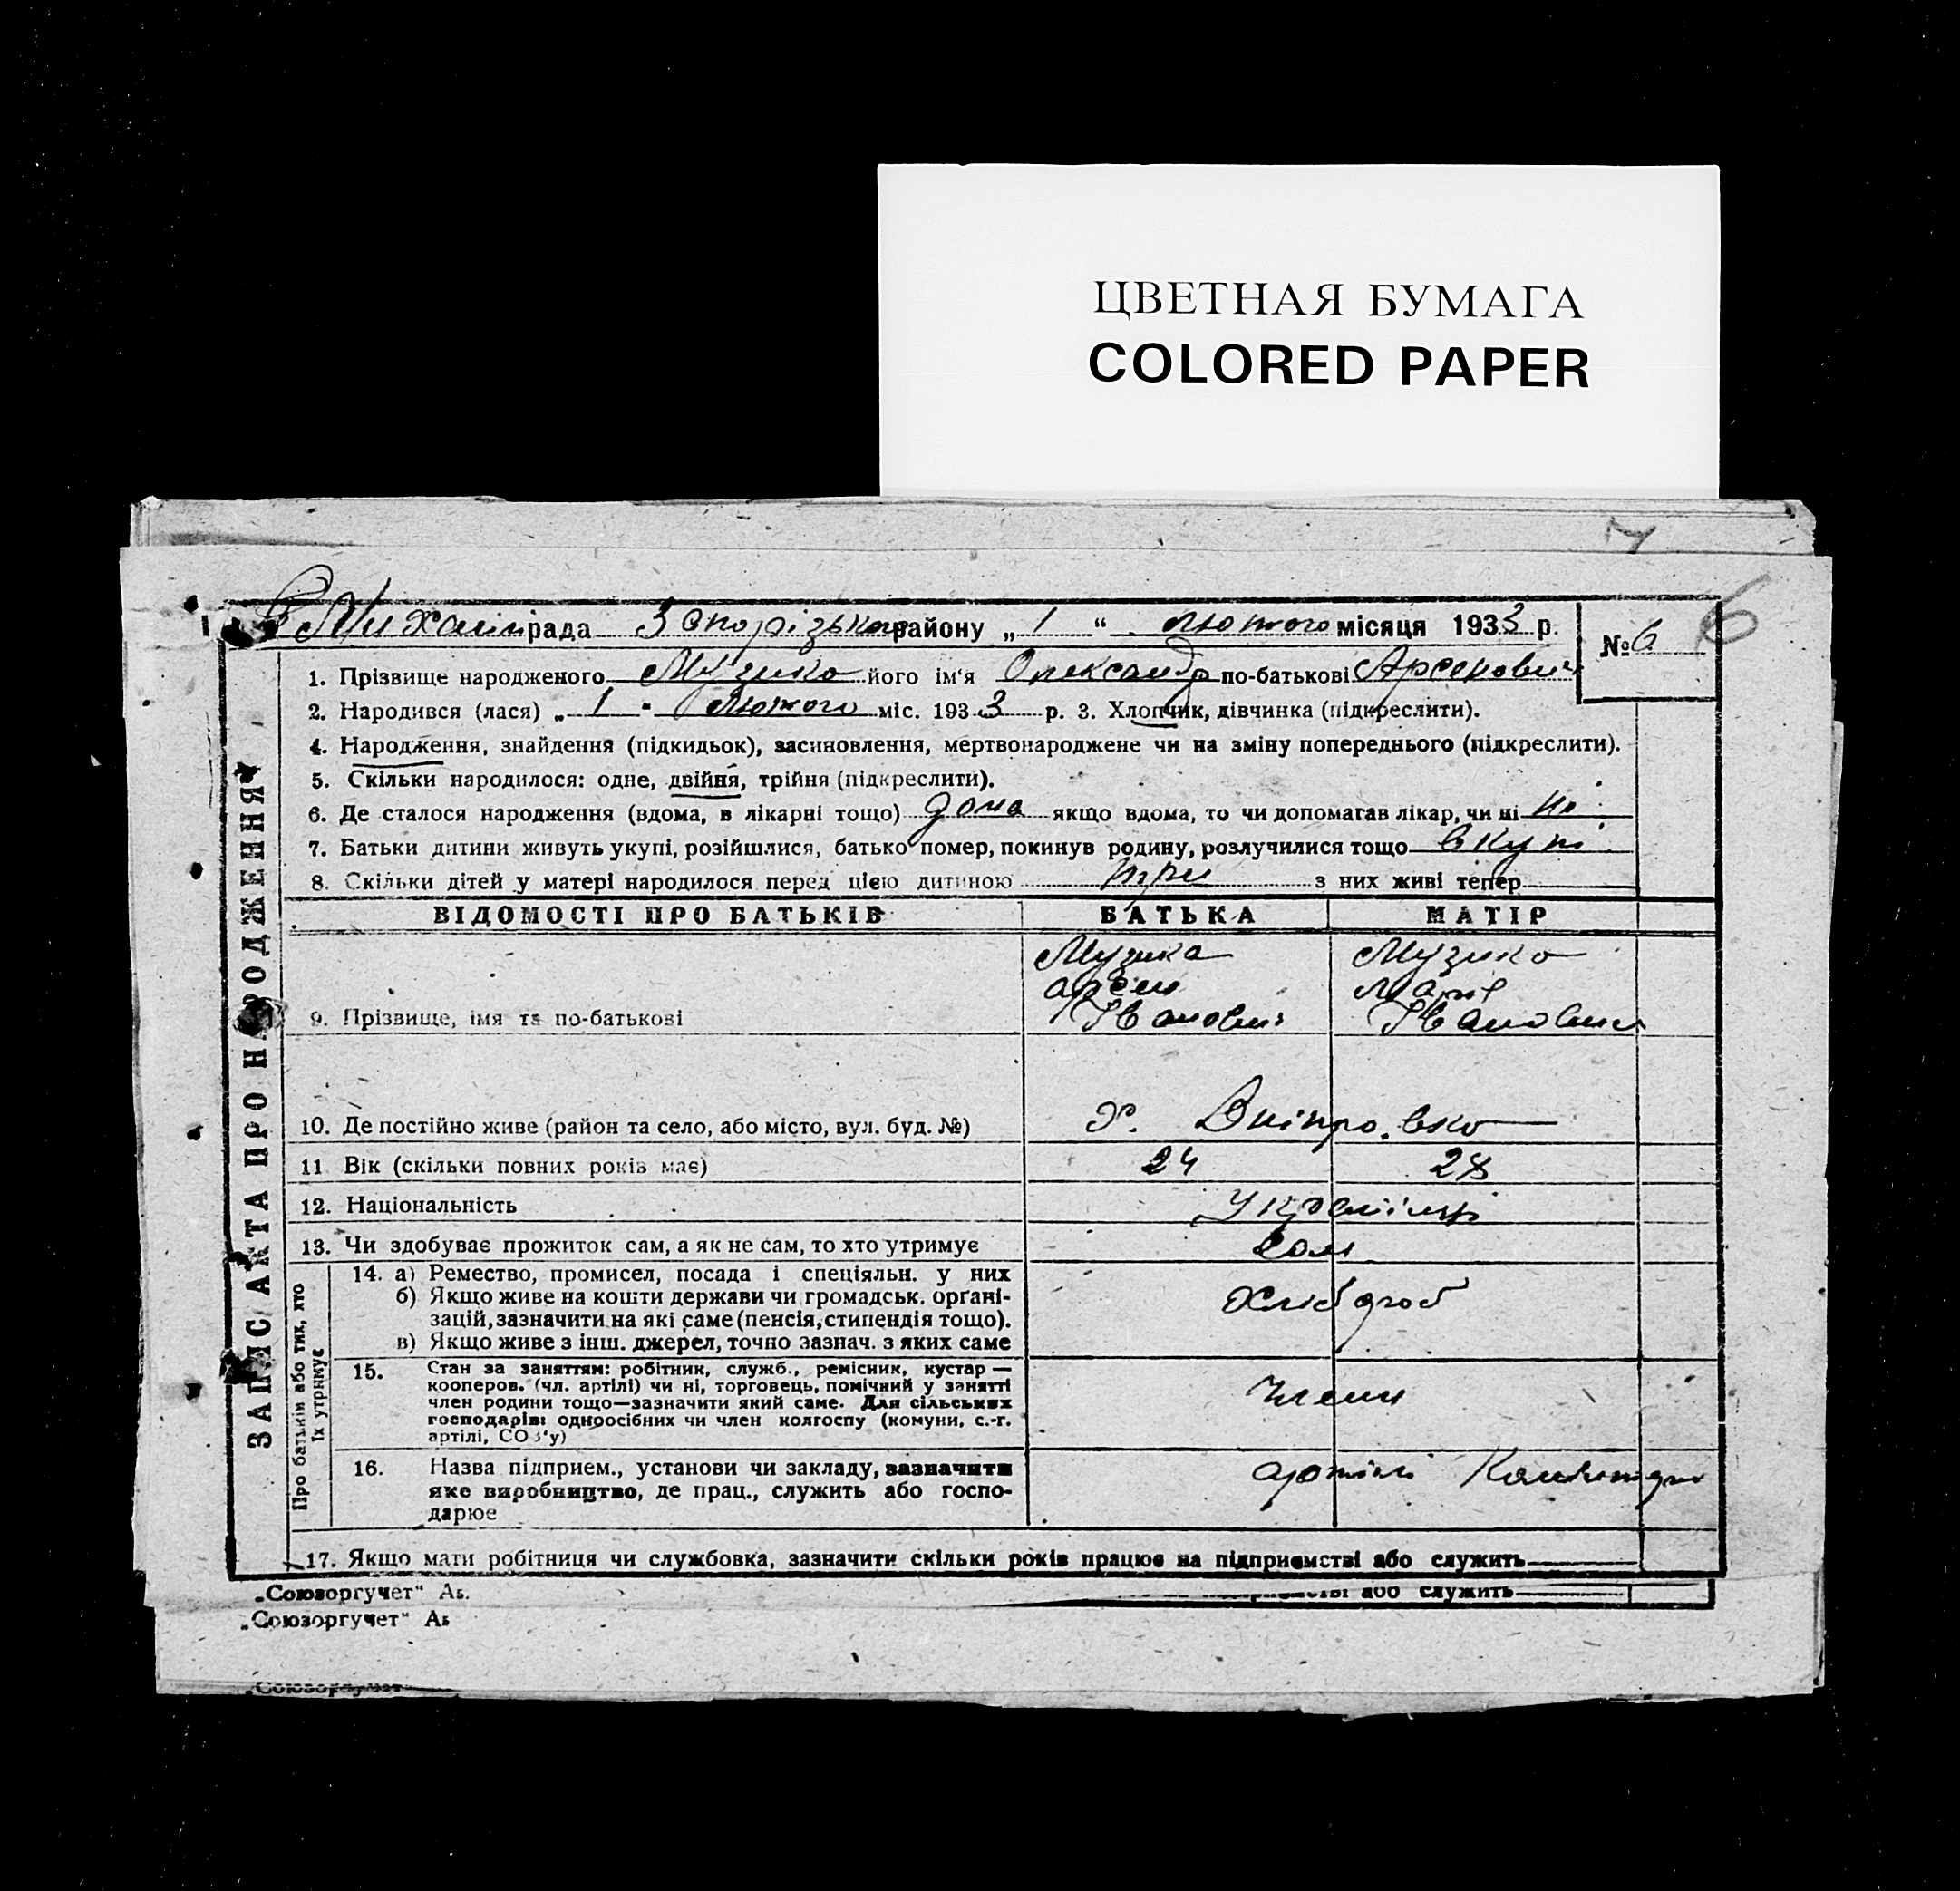 ЦВЕТНАЯ БУМАГА
COLORED PAPER
7
рада Зпорізького району „1“ лютого місяця 1933 р.
№ 6
6
1. Прізвище народженого Музика його ім'я Олександр по-батькові Арсенович
2. Народився (лася) „1" Лютого міс. 1933 р. 3. Хлопчик, дівчинка (підкреслити).
4. Народження, знайдення (підкидьок), засиновлення, мертвонароджене чи на зміну попереднього (підкреслити).
5. Скільки народилося: одне, двійня, трійня (підкреслити).
6. Де сталося народження (вдома, в лікарні тощо) дома якщо вдома, то чи допомагав лікар, чи ні ні
7. Батьки дитини живуть укупі, розійшлися, батько помер, покинув родину, розлучилися тощо вкупі
8. Скільки дітей у матері народилося перед цією дитиною три з них живі тепер
ВІДОМОСТІ ПРО БАТЬКІВ БАТЬКА МАТІР
Музика Музика
Арсен Марія
9. Прізвище, імя та по-батькові Іванович Івановна
10. Де постійно живе (район та село, або місто, вул. буд. №) х. Дніпровка
11 Вік (скільки повних років має) 24 28
12. Національність Українці
13. Чи здобуває прожиток сам, а як не сам, то хто утримує сам
14. а) Ремество, промисел, посада і спеціяльн. у них
б) Якщо живе на кошти держави чи громадськ. органі-
зацій, зазначити на які саме (пенсія, стипендія тощо). Хлібороб
в) Якщо живе з інш. джерел, точно зазнач. з яких саме
15. Стан за заняттям: робітник, служб., ремісник, кустар —
кооперов. (чл. артілі) чи ні, торговець, помічний у занятті
член родини тощо—зазначити який саме. Для сільських Член
господарів: одноосібних чи член колгоспу (комуни, с.-г.
артілі, СОЗ'у)
16. Назва підприєм., установи чи закладу, зазначити артілі
яке виробництво, де прац., служить або госпо-
дарює
17. Якщо мати робітниця чи службовка, зазначити скільки років працює на підприємстві або служить
ЗАПИС АКТА ПРО НАРОДЖЕННЯ
Про батьків або тих, хто
їх утримує
„Союзоргучет" Ав.
або служить
„Союзоргучет" Ав
„Союзоргучет